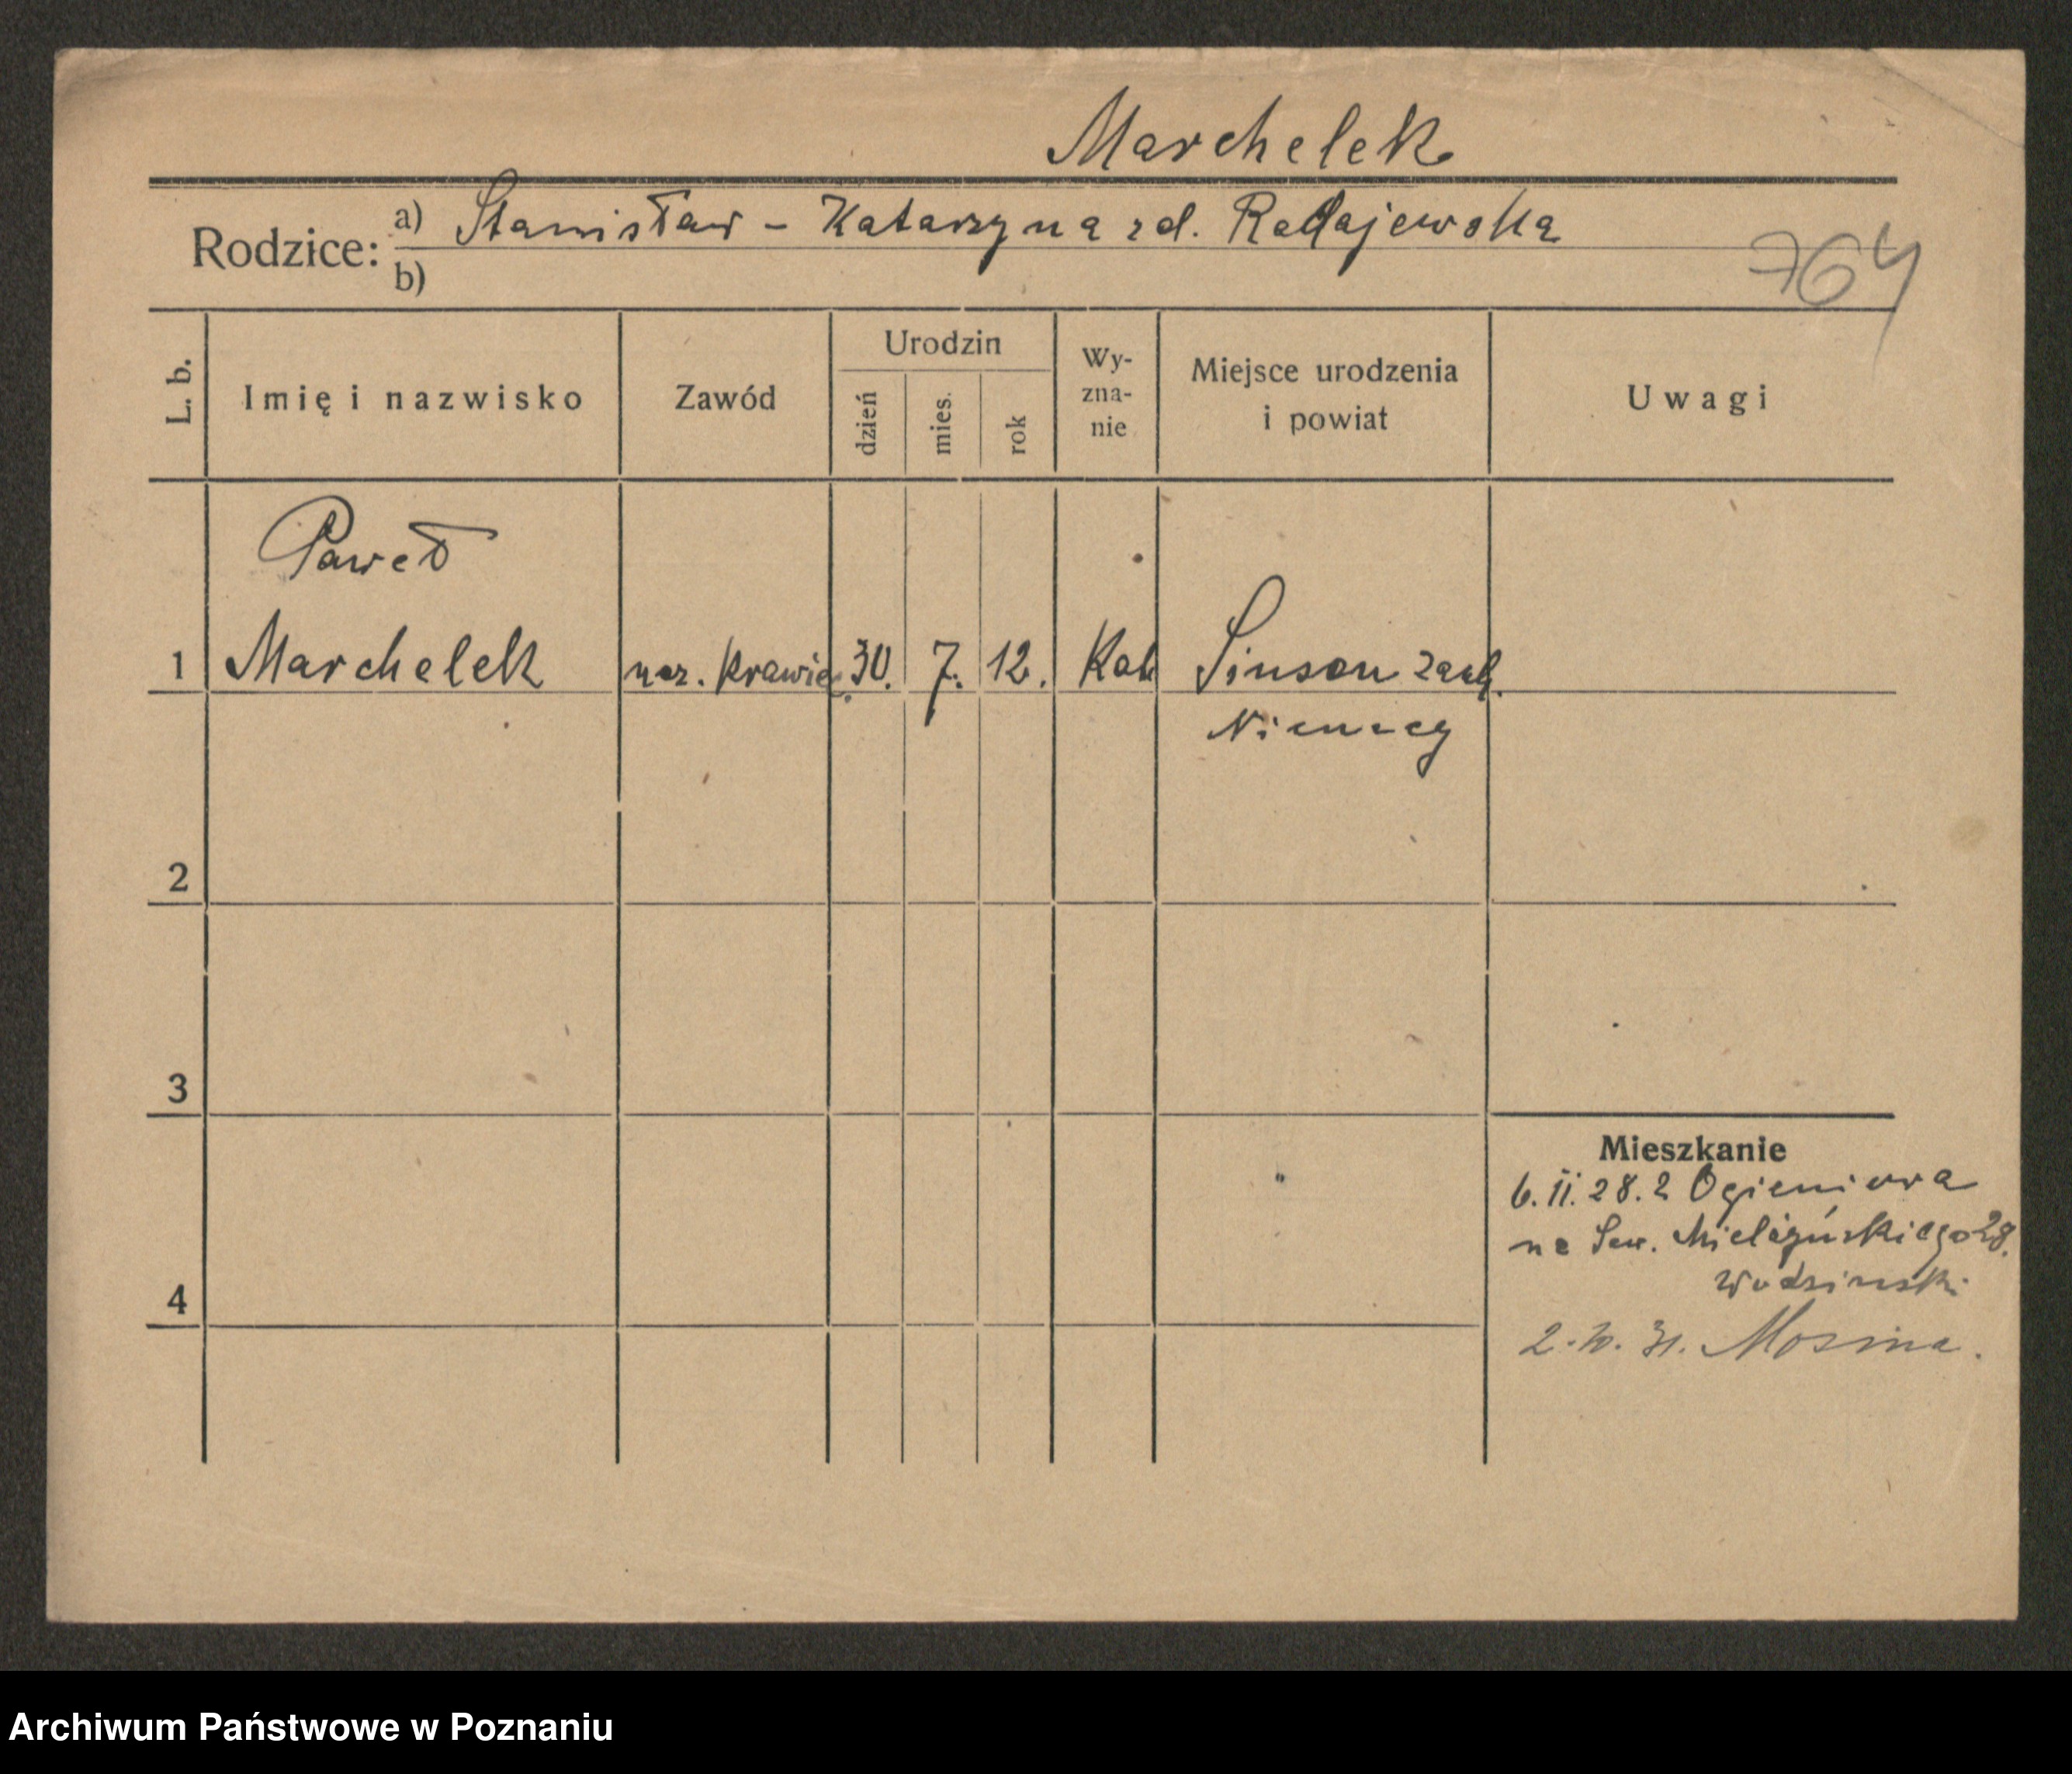 Marchelek
Rodzice: a) Stanisław - Katarzyna zd. Radajewska
b)
764
L. b. Imię i nazwisko Zawód Urodzin dzień mies. rok Wy-zna-nie Miejsce urodzenia i powiat Uwagi
Paweł
1 Marchelek krawiec. 30. 7. 12. Kat Sinsen zach.
Niemcy
2
3
Mieszkanie
6. II. 28. z Ogieniowa
na Sew. Mielżyńskiego 28.
Wodzinski
4
2. 10. 31. Mosina.
Archiwum Państwowe w Poznaniu